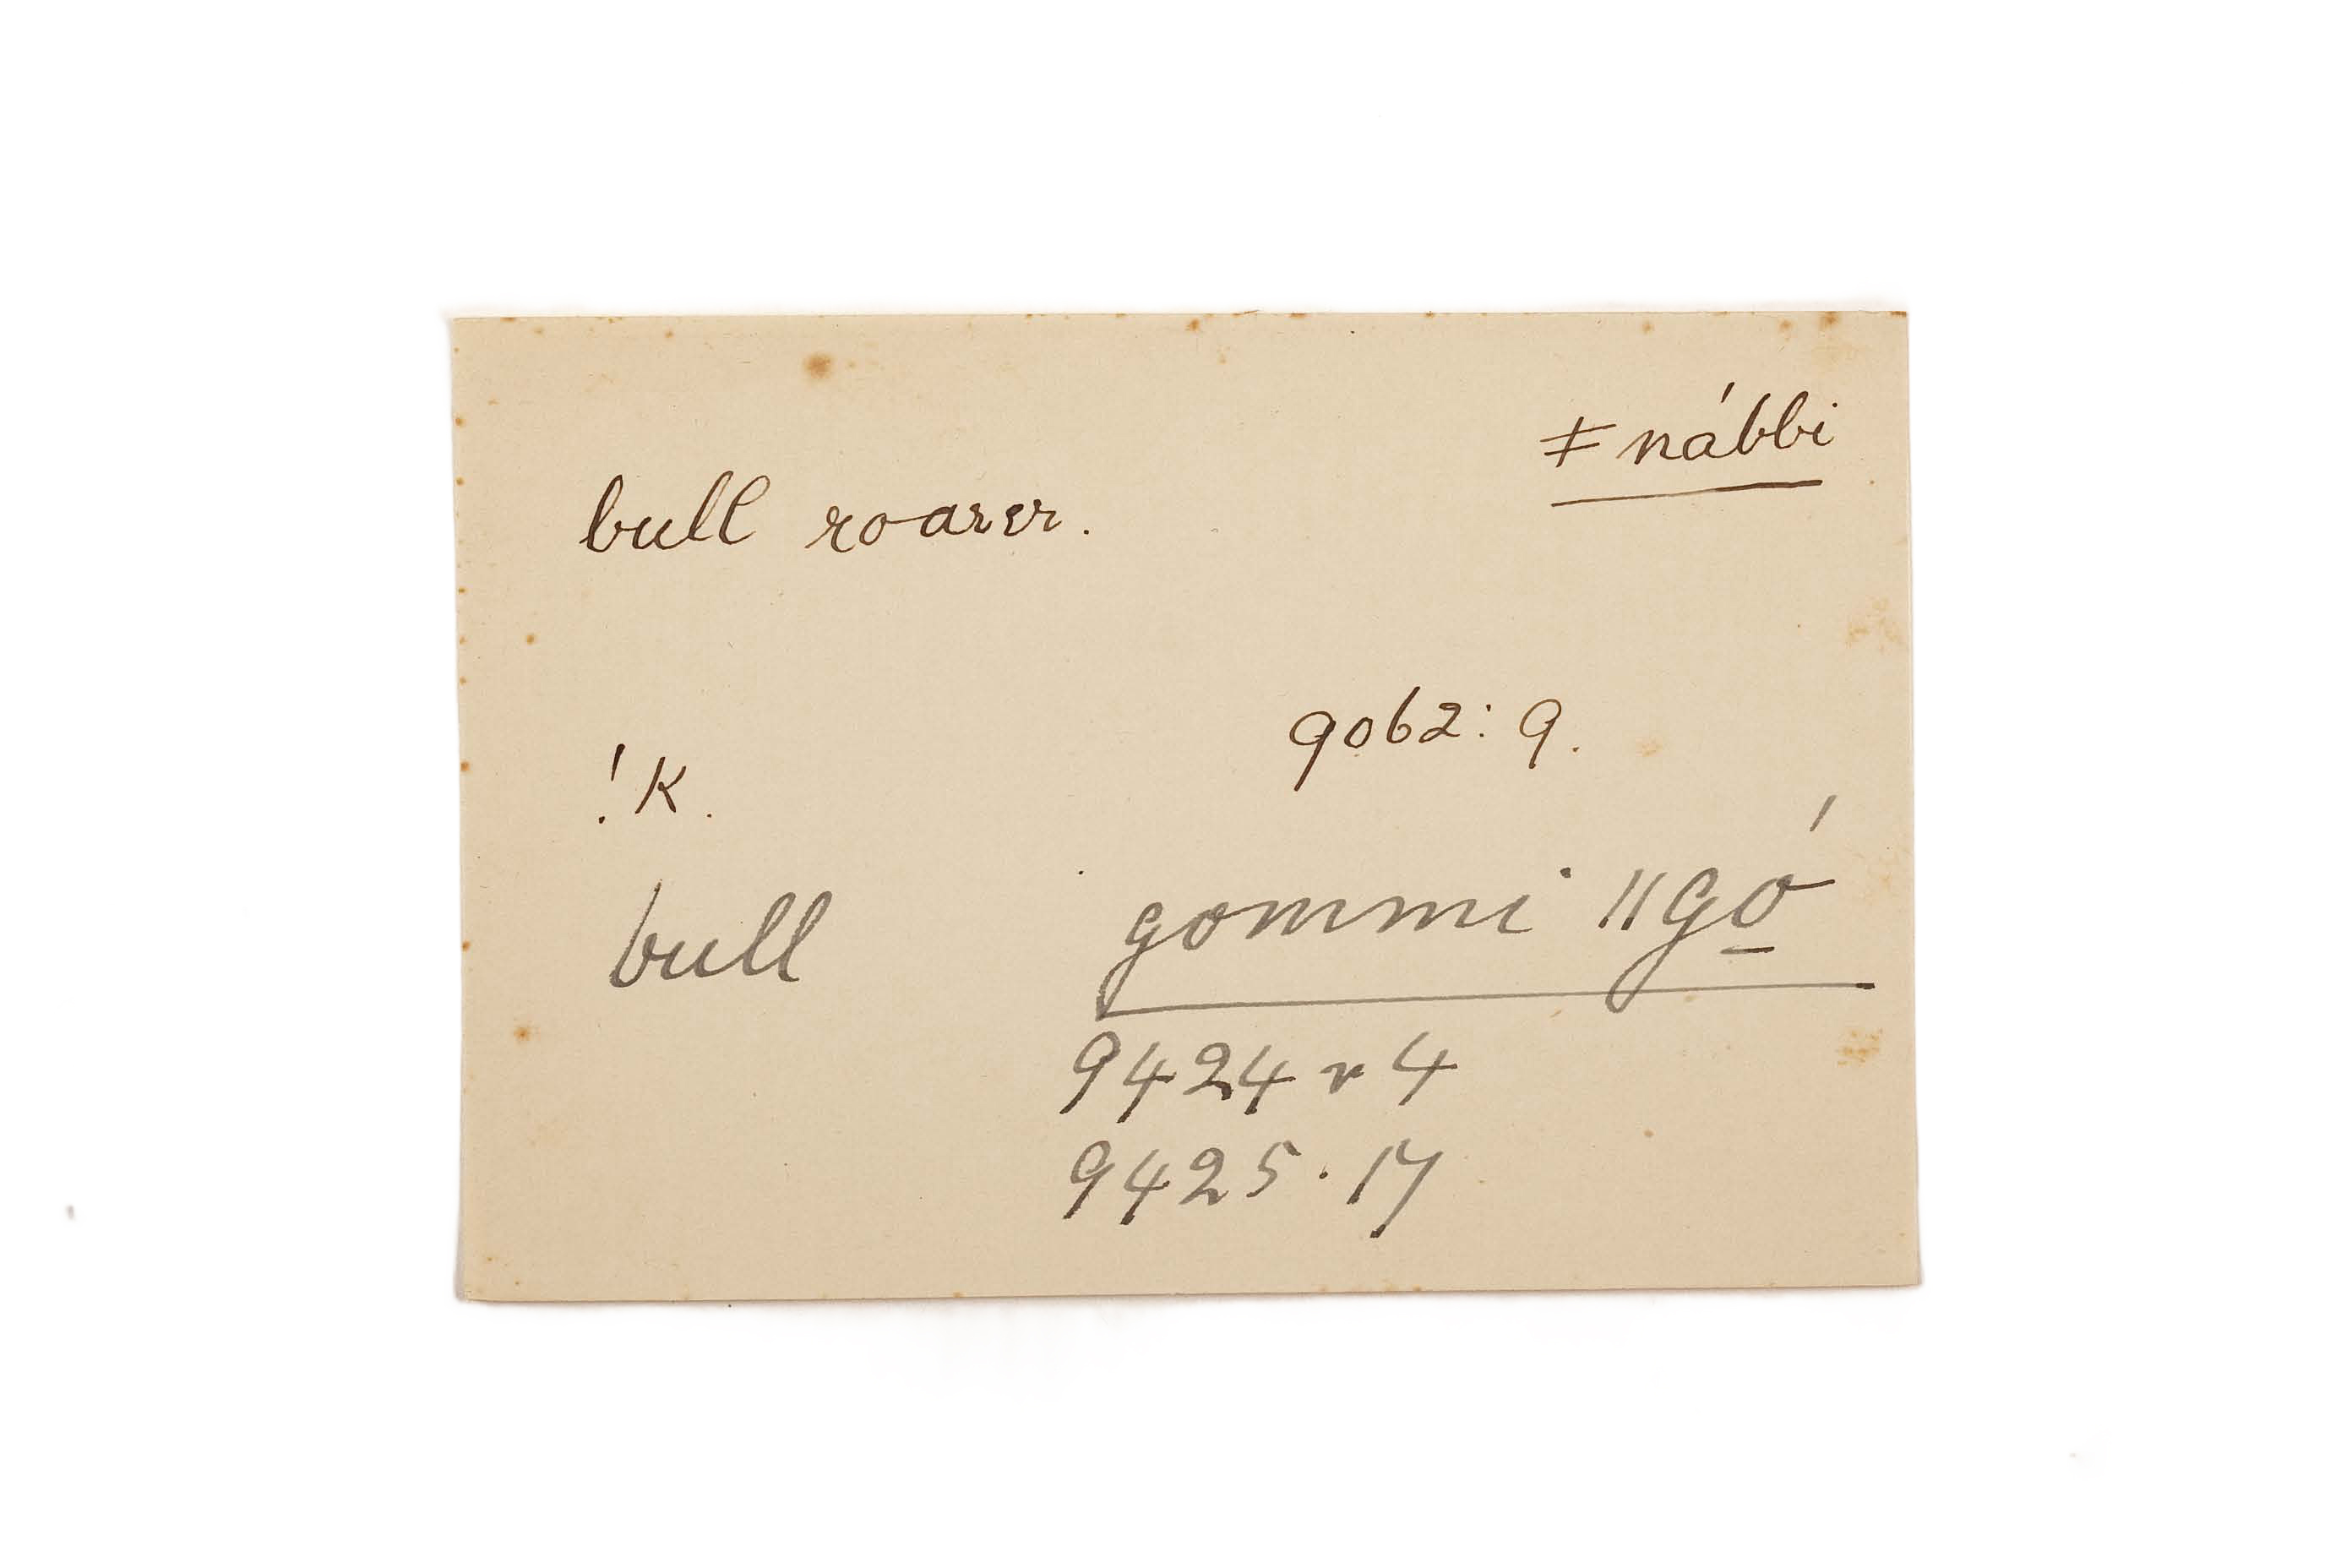 ǂnábbi
bull roarer.
9062: 9.
!K.
bull gommi ǁgó̱
9424 r 4
9425 . 17